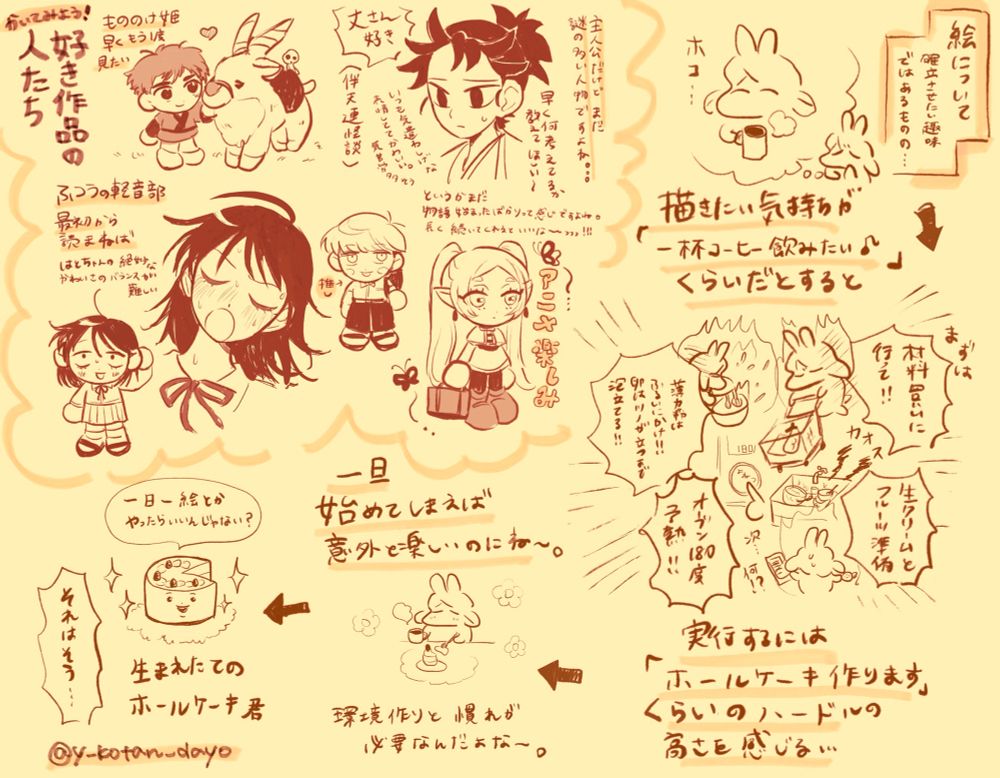 かいてみよう!
好き作品の
人たち
もののけ姫
早くもう1度
見たい
丈さん
好き
(伴天連怪談)
いつも気遣わしげな
表情してて
かわいい。
主人公だけど まだ
謎の多い人物ですよね。。。
早く何考えてるか
教えてほしい〜
というかまだ
物語始まったばかりって感じですよね。
長く続いてくれるといいな〜っっっ!!!
ふつうの軽音部
最初から
読まねば
はとちゃんの絶妙な
かわいさのバランスが
難しい
推っ
アニメ楽しみ
絵について
確立させたい趣味
ではあるものの…
ホコ…
描きたい気持ちが
「一杯コーヒー飲みたい♪」
くらいだとすると
まずは
材料買いに
行って!!
薄力粉は
ふるいにかけ!!
卵はツノが立つまで
泡立てる!!
180
カオス
オーブン180度
予熱!!
生クリームと
フルーツ準備
次…
何?
実行するには
「ホールケーキ作ります」
くらいのハードルの
高さを感じる…
一旦
始めてしまえば
意外と楽しいのにね〜。
環境作りと慣れが
必要なんだよな〜。
一日一絵とか
やったらいいんじゃない?
生まれたての
ホールケーキ君
それはそう…
@y_kotan_dayo